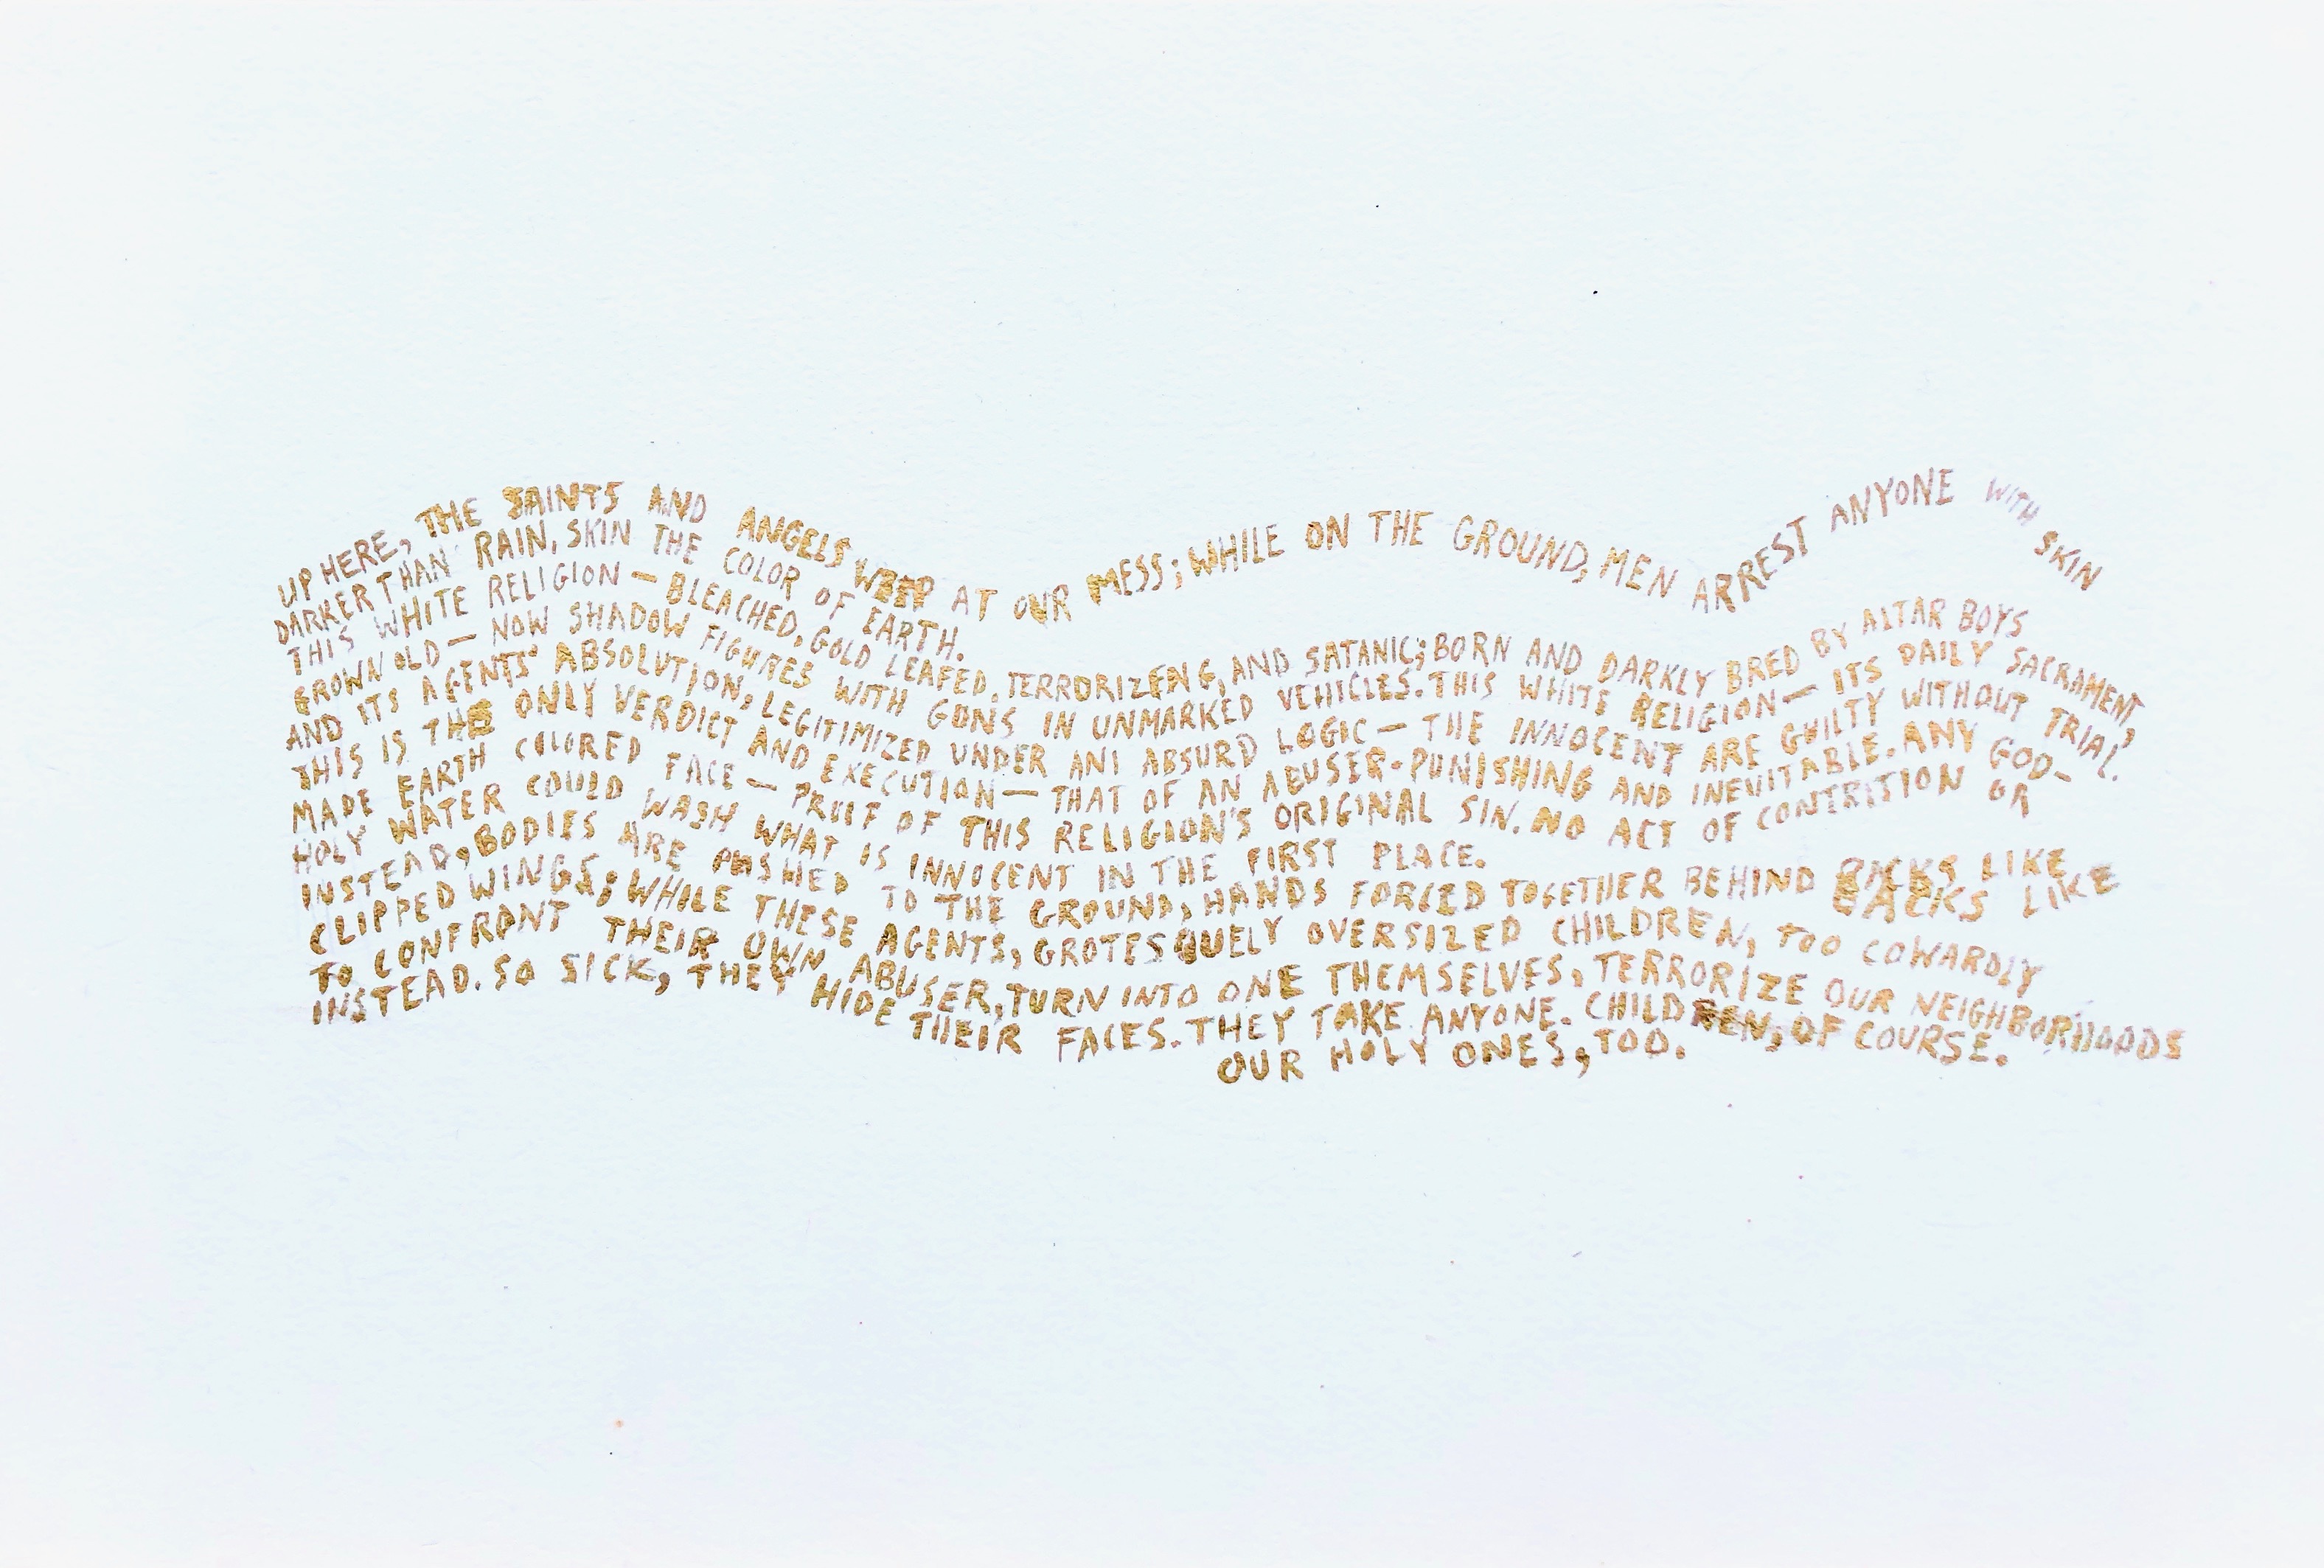 UP HERE, THE SAINTS AND ANGELS WEEP AT OUR MESS; WHILE ON THE GROUND, MEN ARREST ANYONE WITH SKIN
DARKER THAN RAIN, SKIN THE COLOR OF EARTH.
THIS WHITE RELIGION — BLEACHED, GOLD LEAFED, TERRORIZING, AND SATANIC; BORN AND DARKLY BRED BY ALTAR BOYS
GROWN OLD — NOW SHADOW FIGURES WITH GUNS IN UNMARKED VEHICLES. THIS WHITE RELIGION — ITS DAILY SACRAMENT,
AND ITS AGENTS' ABSOLUTION, LEGITIMIZED UNDER AN ABSURD LOGIC — THE INNOCENT ARE GUILTY WITHOUT TRIAL,
THIS IS THE ONLY VERDICT AND EXECUTION — THAT OF AN ABUSER - PUNISHING AND INEVITABLE. ANY GOD-
MADE EARTH COLORED FACE — PROOF OF THIS RELIGION'S ORIGINAL SIN. NO ACT OF CONTRITION OR
HOLY WATER COULD WASH WHAT IS INNOCENT IN THE FIRST PLACE.
INSTEAD, BODIES ARE PUSHED TO THE GROUND, HANDS FORCED TOGETHER BEHIND BACKS LIKE
BACKS LIKE
CLIPPED WINGS; WHILE THESE AGENTS, GROTESQUELY OVERSIZED CHILDREN, TOO COWARDLY
TO CONFRONT THEIR OWN ABUSER, TURN INTO ONE THEMSELVES, TERRORIZE OUR NEIGHBORHOODS
INSTEAD. SO SICK, THEY HIDE THEIR FACES. THEY TAKE ANYONE. CHILDREN, OF COURSE.
OUR HOLY ONES, TOO.